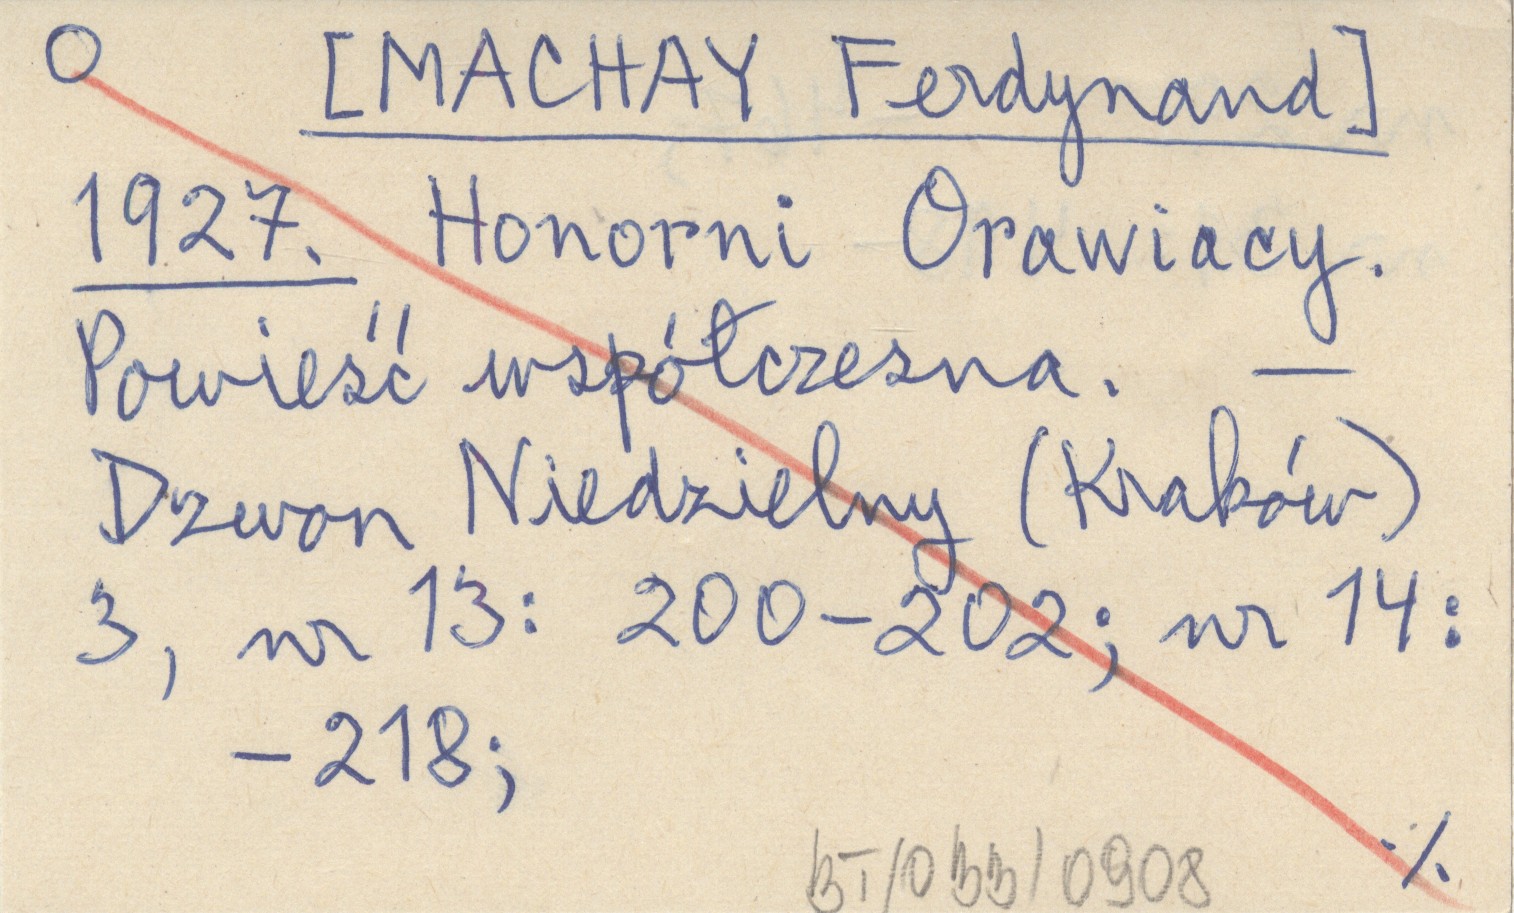 O [MACHAY Ferdynand]
1927. Honorni Orawiacy.
Powieść współczesna. —
Dzwon Niedzielny (Kraków)
3, nr 13: 200-202; nr 14:
-218;
./.
BT/OBB/0908